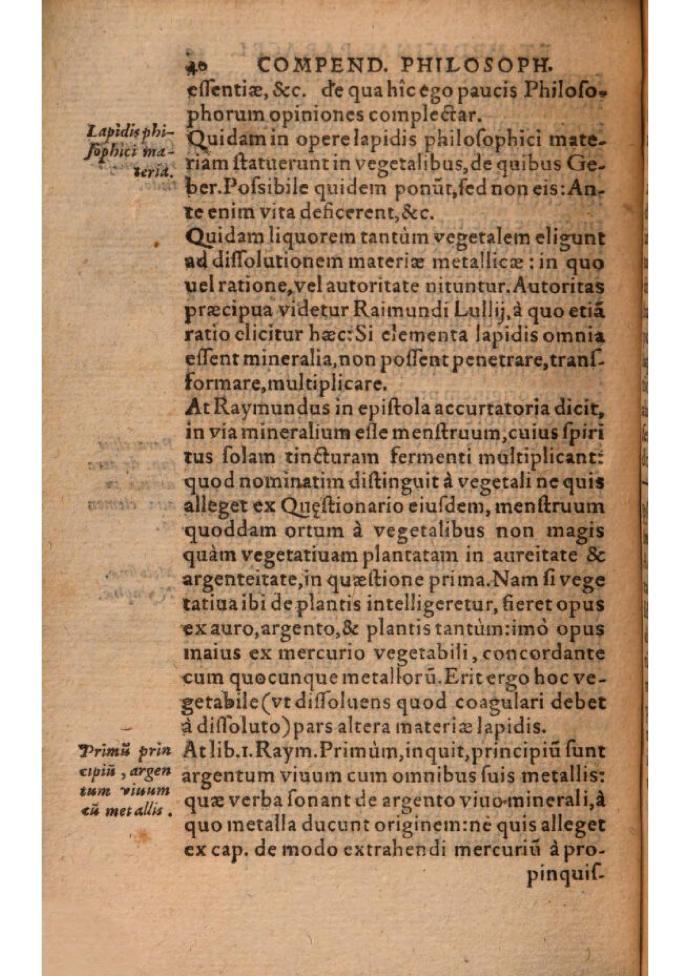 40 COMPEND. PHILOSOPH.
eſſentiæ, &c. de qua hîc ego paucis Philoſo-
phorum opiniones complectar.
Lapidis phi-
ſophici ma-
teria.
Quidam in opere lapidis philoſophici mate-
riam ſtatuerunt in vegetalibus, de quibus Ge-
ber. Poſsibile quidem ponūt, ſed non eis: An-
te enim vita deficerent, &c.
Quidam liquorem tantùm vegetalem eligunt
ad diſſolutionem materiæ metallicæ: in quo
uel ratione, vel autoritate nituntur. Autoritas
præcipua videtur Raimundi Lullij, à quo etiā
ratio elicitur hæc: Si elementa lapidis omnia
eſſent mineralia, non poſſent penetrare, tranſ-
formare, multiplicare.
At Raymundus in epiſtola accurtatoria dicit,
in via mineralium eſſe menſtruum, cuius ſpiri
tus ſolam tincturam fermenti multiplicant:
quod nominatim diſtinguit à vegetali ne quis
alleget ex Quęſtionario eiuſdem, menſtruum
quoddam ortum à vegetalibus non magis
quàm vegetatiuam plantatam in aureitate &
argenteitate, in quæſtione prima. Nam ſi vege
tatiua ibi de plantis intelligeretur, fieret opus
ex auro, argento, & plantis tantùm: imò opus
maius ex mercurio vegetabili, concordante
cum quocunque metallorū. Erit ergo hoc ve-
getabile (vt diſſoluens quod coagulari debet
à diſſoluto) pars altera materiæ lapidis.
Primū prin
cipiū, argen
tum viuum
cū metallis.
At lib. 1. Raym. Primùm, inquit, principiū ſunt
argentum viuum cum omnibus ſuis metallis:
quæ verba ſonant de argento viuo minerali, à
quo metalla ducunt originem: ne quis alleget
ex cap. de modo extrahendi mercuriū à pro-
pinquiſ-